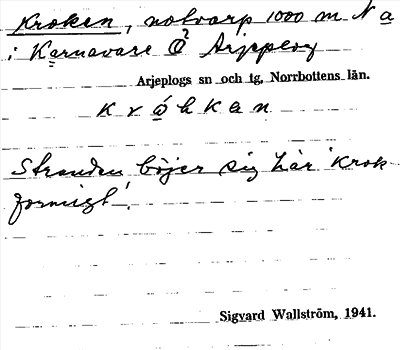 Kroken, notvarp 1000 m N a
i Karnavare Ö Arjeplog
Arjeplogs sn och tg, Norrbottens län.
krå̀kkan
Stranden böjer sig här krok
formigt!
Sigvard Wallström, 1941.